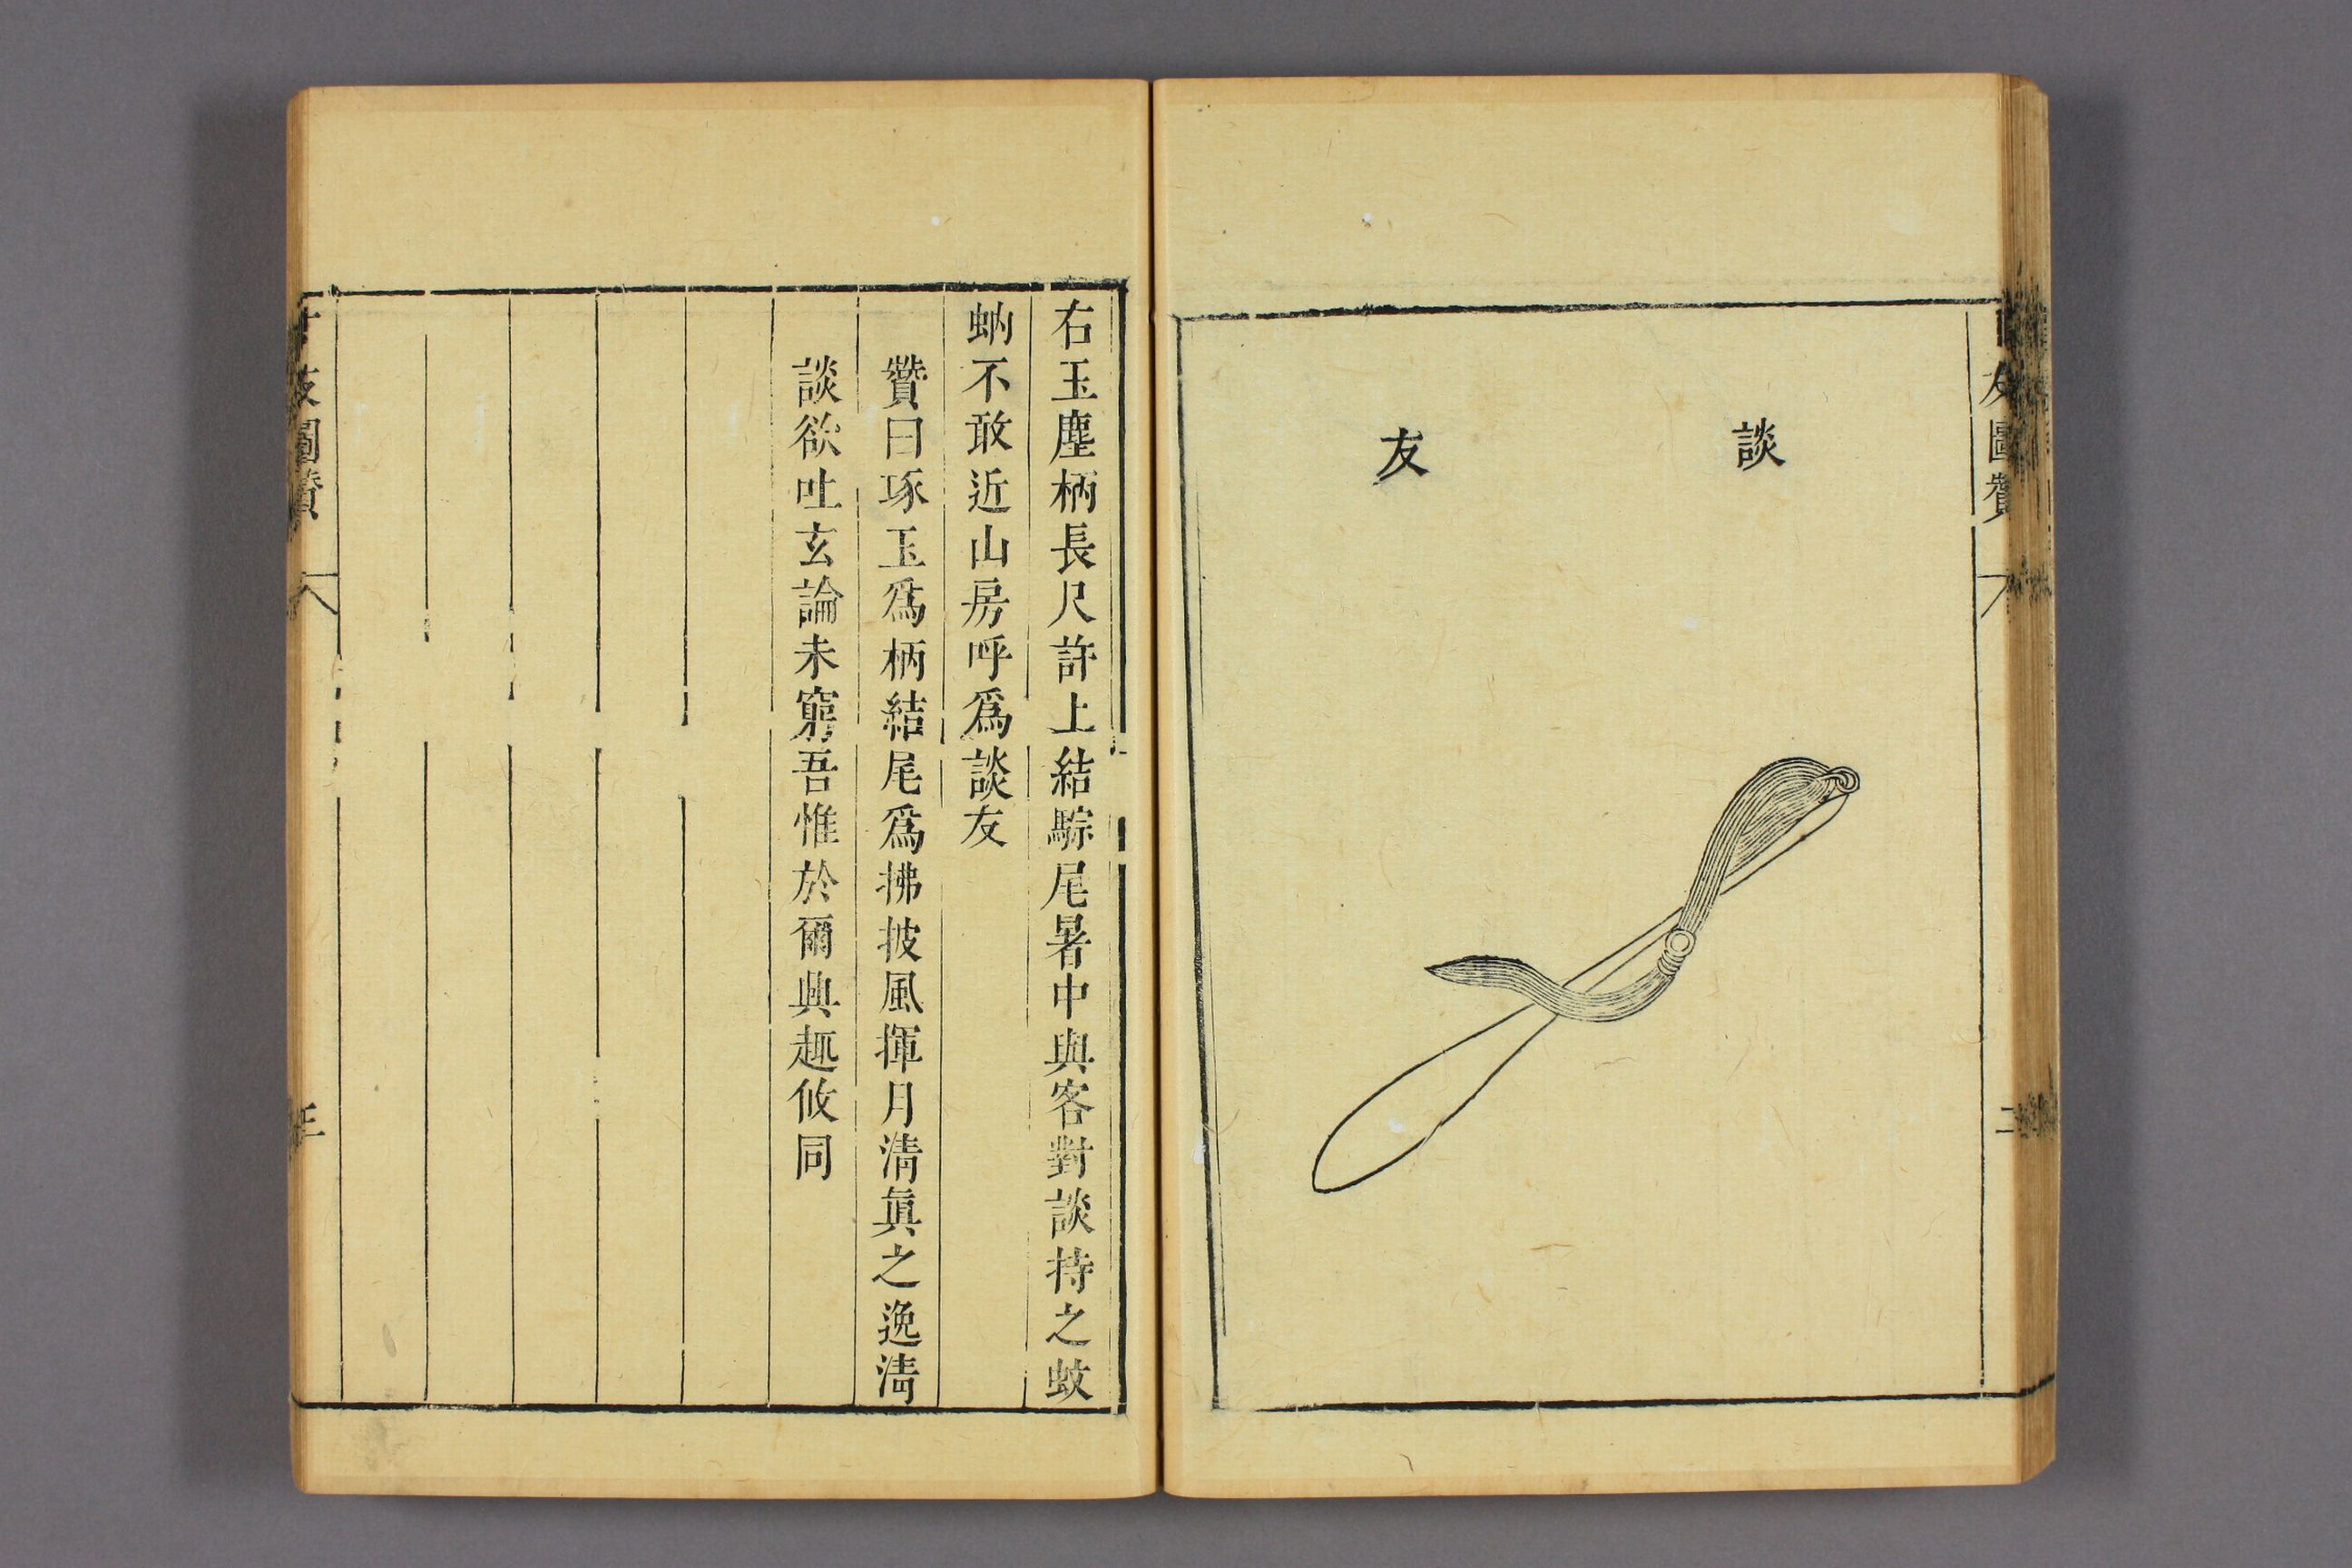 談友
右玉塵柄長尺許上結騌尾暑中與客對談持之蚊
蚋不敢近山房呼爲談友
贊曰琢玉爲柄結尾爲拂披風揮月清眞之逸清
談欲吐玄論未窮吾惟於爾興趣攸同
友圖贊
圖贊